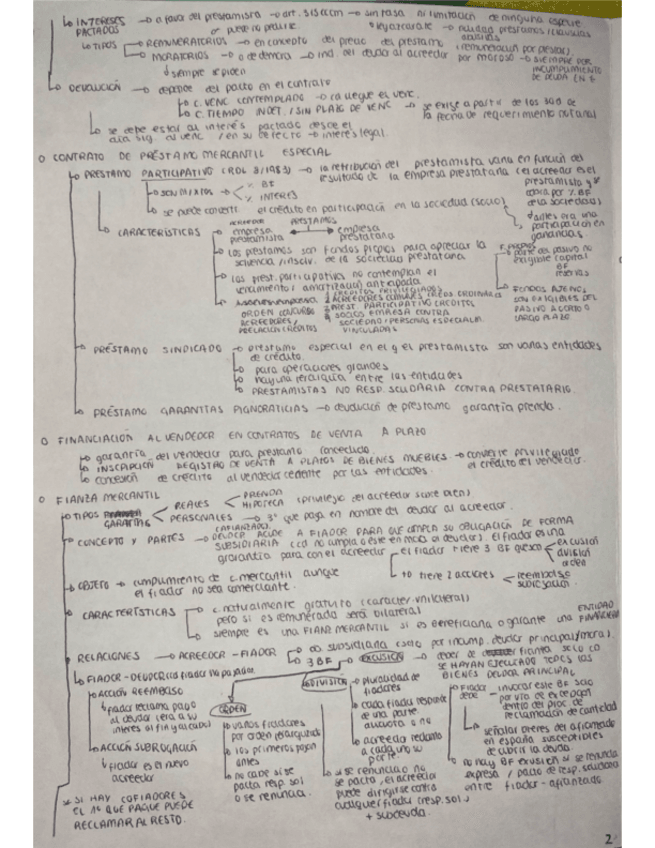 INTERESES PACTADOS → a favor del prestamista → art. 315 CCOM → sin tasa ni limitación de ninguna especie
TIPOS → REMUNERATORIOS → en concepto del precio del préstamo (remuneración por prestar)
MORATORIOS → o de demora → ind. del deudor al acreedor por moroso → SIEMPRE POR INCUMPLIMIENTO DE DEUDA
siempre se piden
DEVOLUCIÓN → depende del pacto en el contrato
C. VENC CONTEMPLADO → cd llegue el venc.
C. TIEMPO INDET. / SIN PLAZO DE VENC → se exige a partir de los 30d de la fecha de requerimiento notarial
se debe estar al interés pactado desde el día sig. al venc / en su defecto → interés legal.
O CONTRATO DE PRÉSTAMO MERCANTIL ESPECIAL
PRÉSTAMO PARTICIPATIVO (RDL 8/1983) → la retribución del prestamista varía en función del resultado de la empresa prestataria (el acreedor es el prestamista y cobra por % BF de la sociedad)
SON MIXTOS → % BF
% INTERÉS
se puede convertir el crédito en participación en la sociedad (socio)
darles una participación en ganancias
CARACTERÍSTICAS
ACREEDOR PRÉSTAMOS
empresa prestamista ↔ empresa prestataria
los préstamos son fondos propios para apreciar la solvencia / insolv. de la sociedad prestataria
F. PROPIOS parte del pasivo no exigible capital BF reservas
los prest. participativos no contemplan el vencimiento / amortización anticipada
FONDOS AJENOS SON EXIGIBLES DEL PASIVO A CORTO O LARGO PLAZO
ORDEN CONCURSO ACREEDORES / PRELACIÓN CRÉDITOS
1 CRÉDITOS PRIVILEGIADOS
2 ACREEDORES COMUNES CRÉDS ORDINARIOS
3 PREST PARTICIPATIVO CRÉDITOS
4 SOCIOS EMPRESA CONTRA SOCIEDAD / PERSONAS ESPECIALM. VINCULADAS
PRÉSTAMO SINDICADO → préstamo especial en el q el prestamista son varias entidades de crédito.
para operaciones grandes
hay una jerarquía entre las entidades
PRESTAMISTAS NO RESP. SOLIDARIA CONTRA PRESTATARIO
PRÉSTAMO GARANTÍAS PIGNORATICIAS → devolución de préstamo garantía prenda.
O FINANCIACIÓN AL VENDEDOR EN CONTRATOS DE VENTA A PLAZO
garantía del vendedor para préstamo concedido.
INSCRIPCIÓN REGISTRO DE VENTA A PLAZOS DE BIENES MUEBLES → convierte privilegiado el crédito del vendedor.
concesión de crédito al vendedor cedente por las entidades.
O FIANZA MERCANTIL
TIPOS GARANTÍAS
REALES PRENDA HIPOTECA (privilegio del acreedor sobre bien)
PERSONALES → 3º que paga en nombre del deudor al acreedor.
(AFIANZADO)
CONCEPTO Y PARTES → DEUDOR ACUDE A FIADOR PARA QUE CUMPLA SU OBLIGACIÓN DE FORMA SUBSIDIARIA (cd no cumpla o esté en mora el deudor). El fiador es una garantía para con el acreedor
el fiador tiene 3 BF excusión división orden
tb tiene 2 acciones reembolso subrogación
OBJETO → cumplimiento de c. mercantil aunque el fiador no sea comerciante.
CARACTERÍSTICAS → c. naturalmente gratuito (carácter unilateral) pero si es remunerada será bilateral
siempre es una FIANZ MERCANTIL si es beneficiaria o garante una ENTIDAD FINANCIERA
RELACIONES → ACREEDOR - FIADOR → ob subsidiaria como por incump. deudor principal / mora).
3 BF → EXCUSIÓN → deber de fianza solo cd SE HAYAN EJECUTADO TODOS LOS BIENES DEUDOR PRINCIPAL
FIADOR - DEUDOR (cd fiador ha pagado)
ACCIÓN REEMBOLSO
fiador reclama pago al deudor
ACCIÓN SUBROGACIÓN
fiador es el nuevo acreedor
* SI HAY COFIADORES EL 1º QUE PAGUE PUEDE RECLAMAR AL RESTO.
ORDEN
varios fiadores por orden
los primeros pagan antes
no cabe si se pacta resp. sol o se renuncia.
DIVISIÓN
pluralidad de fiadores
cada fiador responde de una parte
acreedor reclama a cada uno su parte.
si se renuncia o no se pacta, el acreedor puede dirigirse contra cualquier fiador (resp. sol.) + su deuda.
Fiador debe → invocar este BF solo por vía de excepción dentro del proc. de reclamación de cantidad
señalar bienes del afianzado en España susceptibles de cubrir la deuda.
no hay BF excusión si se renuncia expresa / pacto de resp. solidaria entre fiador - afianzado
2